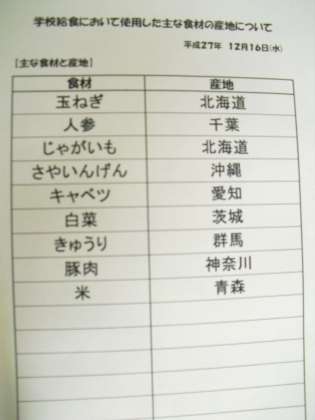 学校給食において使用した主な食材の産地について
平成27年 12月16日(水)
[主な食材と産地]
食材 産地
玉ねぎ 北海道
人参 千葉
じゃがいも 北海道
さやいんげん 沖縄
キャベツ 愛知
白菜 茨城
きゅうり 群馬
豚肉 神奈川
米 青森